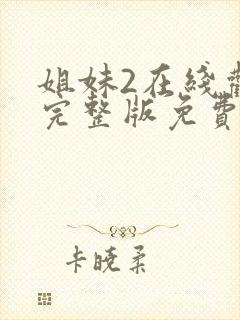 姐妹2在线观
完整版免费
卡晓柔